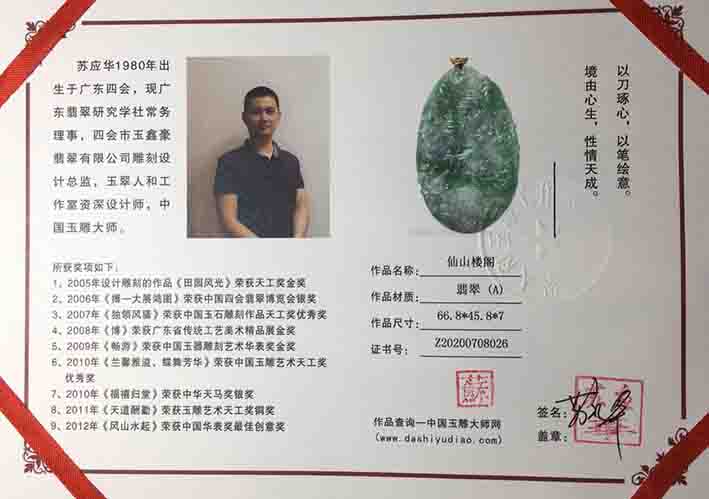 苏应华1980年出
生于广东四会，现广
东翡翠研究学社常务
理事，四会市玉鑫豪
翡翠有限公司雕刻设
计总监，玉翠人和工
作室资深设计师，中
国玉雕大师。
以刀琢心，以笔绘意。
境由心生，性情天成。
所获奖项如下：
1、2005年设计雕刻的作品《田园风光》荣获天工奖金奖
2、2006年《搏一大展鸿图》荣获中国四会翡翠博览会银奖
3、2007年《独领风骚》荣获中国玉石雕刻作品天工奖优秀奖
4、2008年《博》荣获广东省传统工艺美术精品展金奖
5、2009年《畅游》荣获中国玉器雕刻艺术华表奖金奖
6、2010年《兰馨雅溢、蝶舞芳华》荣获中国玉雕艺术天工奖
优秀奖
7、2010年《福禧归堂》荣获中华天马奖银奖
8、2011年《天道酬勤》荣获玉雕艺术天工奖铜奖
9、2012年《风山水起》荣获中国华表奖最佳创意奖
作品名称：仙山楼阁
作品材质：翡翠（A）
作品尺寸：66.8*45.8*7
证书号：Z20200708026
作品查询—中国玉雕大师网
(www.dashiyudiao.com)
签名：
盖章：